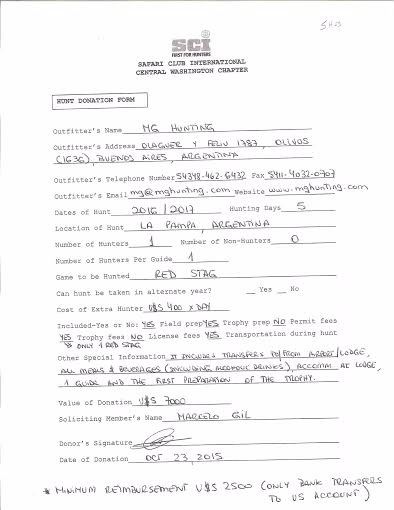 SCI
FIRST FOR HUNTERS
SAFARI CLUB INTERNATIONAL
CENTRAL WASHINGTON CHAPTER
HUNT DONATION FORM
Outfitter's Name MG HUNTING
Outfitter's Address OLAGUER Y FELIU 1787, OLIVOS
(1636), BUENOS AIRES, ARGENTINA
Outfitter's Telephone Number 54348-462-6432 Fax 5411-4032-0707
Outfitter's Email mg@mghunting.com Website www.mghunting.com
Dates of Hunt 2016/2017 Hunting Days 5
Location of Hunt LA PAMPA, ARGENTINA
Number of Hunters 1 Number of Non-Hunters 0
Number of Hunters Per Guide 1
Game to be Hunted RED STAG
Can hunt be taken in alternate year? Yes No
Cost of Extra Hunter U$S 400 x DAY
Included-Yes or No: YES Field prep YES Trophy prep NO Permit fees
YES Trophy fees NO License fees YES Transportation during hunt
ONLY 1 RED STAG
Other Special Information IT INCLUDES TRANSFERS TO/FROM AIRPORT/LODGE,
ALL MEALS & BEVERAGES (INCLUDING ALCOHOLIC DRINKS), ACCOMM AT LODGE,
1 GUIDE AND THE FIRST PREPARATION OF THE TROPHY.
Value of Donation U$S 7000
Soliciting Member's Name MARCELO GIL
Donor's Signature
Date of Donation OCT 23, 2015
* MINIMUM REIMBURSEMENT U$S 2500 (ONLY BANK TRANSFERS
TO US ACCOUNT)